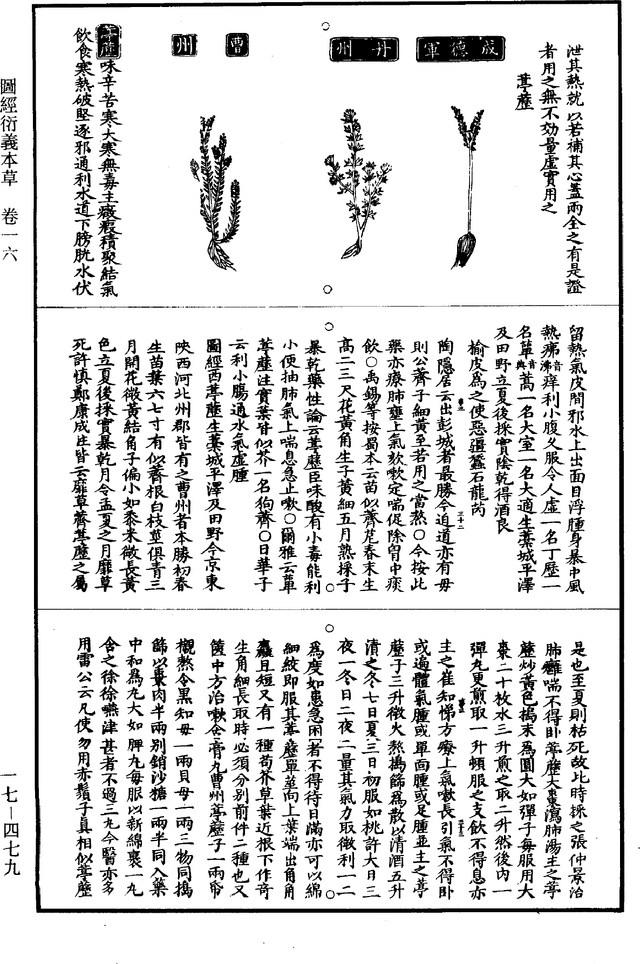 圖經衍義本草　卷一六
一七—四七九
泄其熱就以苦補其心蓋兩全之有是證
者用之無不効量虛實用之
葶藶
成德軍
丹州
曹州
葶藶味辛苦寒大寒無毒主癥瘕積聚結氣
飲食寒熱破堅逐邪通利水道下膀胱水伏
留熱氣皮間邪水上出面目浮腫身暴中風
熱痱音沸痒利小腹久服令人虛一名丁歷一
名蕇音典蒿一名大室一名大適生藁城平澤
及田野立夏後採實陰乾得酒良
榆皮為之使惡殭蠶石龍芮
陶隱居云出彭城者最勝今近道亦有母
則公薺子細黃至苦用之當熬○今按此
藥亦療肺壅上氣欬嗽定喘促除胷中痰
飲○禹錫等按蜀本云苗似薺苨春末生
高二三尺花黃角生子黃細五月熟採子
暴乾藥性論云葶藶臣味酸有小毒能利
小便抽肺氣上喘息急止嗽○爾雅云蕇
葶藶注實葉皆似芥一名狗薺○日華子
云利小腸通水氣虛腫
圖經曰葶藶生藁城平澤及田野今京東
陝西河北州郡皆有之曹州者本勝初春
生苗葉六七寸有似薺根白枝莖俱青三
月開花微黃結角子偏小如黍米微長黃
色立夏後採實暴乾月令孟夏之月靡草
死許慎鄭康成注皆云靡草薺葶藶之屬
是也至夏則枯死故此時採之張仲景治
肺癰喘不得卧葶藶大棗瀉肺湯主之葶
藶炒黃色搗末為圓大如彈子每服用大
棗二十枚水三升煎之取二升然後內一
彈丸更煎取一升頓服之支飲不得息亦
主之崔知悌方療上氣嗽長引氣不得卧
或遍體氣腫或單面腫或足腫並主之葶
藶子三升微火熬搗篩為散以清酒五升
漬之冬七日夏三日初服如桃許大日三
夜一冬日二夜二量其氣力取微利一二
為度如患急困者不得待日滿亦可以綿
細絞即服其葶藶單莖向上葉端出角角
麤且短又有一種苟芥草葉近根下作奇
生角細長取時必須分別前件二種也又
篋中方治嗽含膏丸曹州葶藶子一兩帋
襯熬令黑知母一兩貝母一兩三物同搗
篩以棗肉半兩別銷沙糖一兩半同入藥
中和為丸大如脾丸每服以新綿裹一丸
含之徐徐嚥津甚者不過三丸今醫亦多
用雷公云凡使勿用赤鬚子真相似葶藶